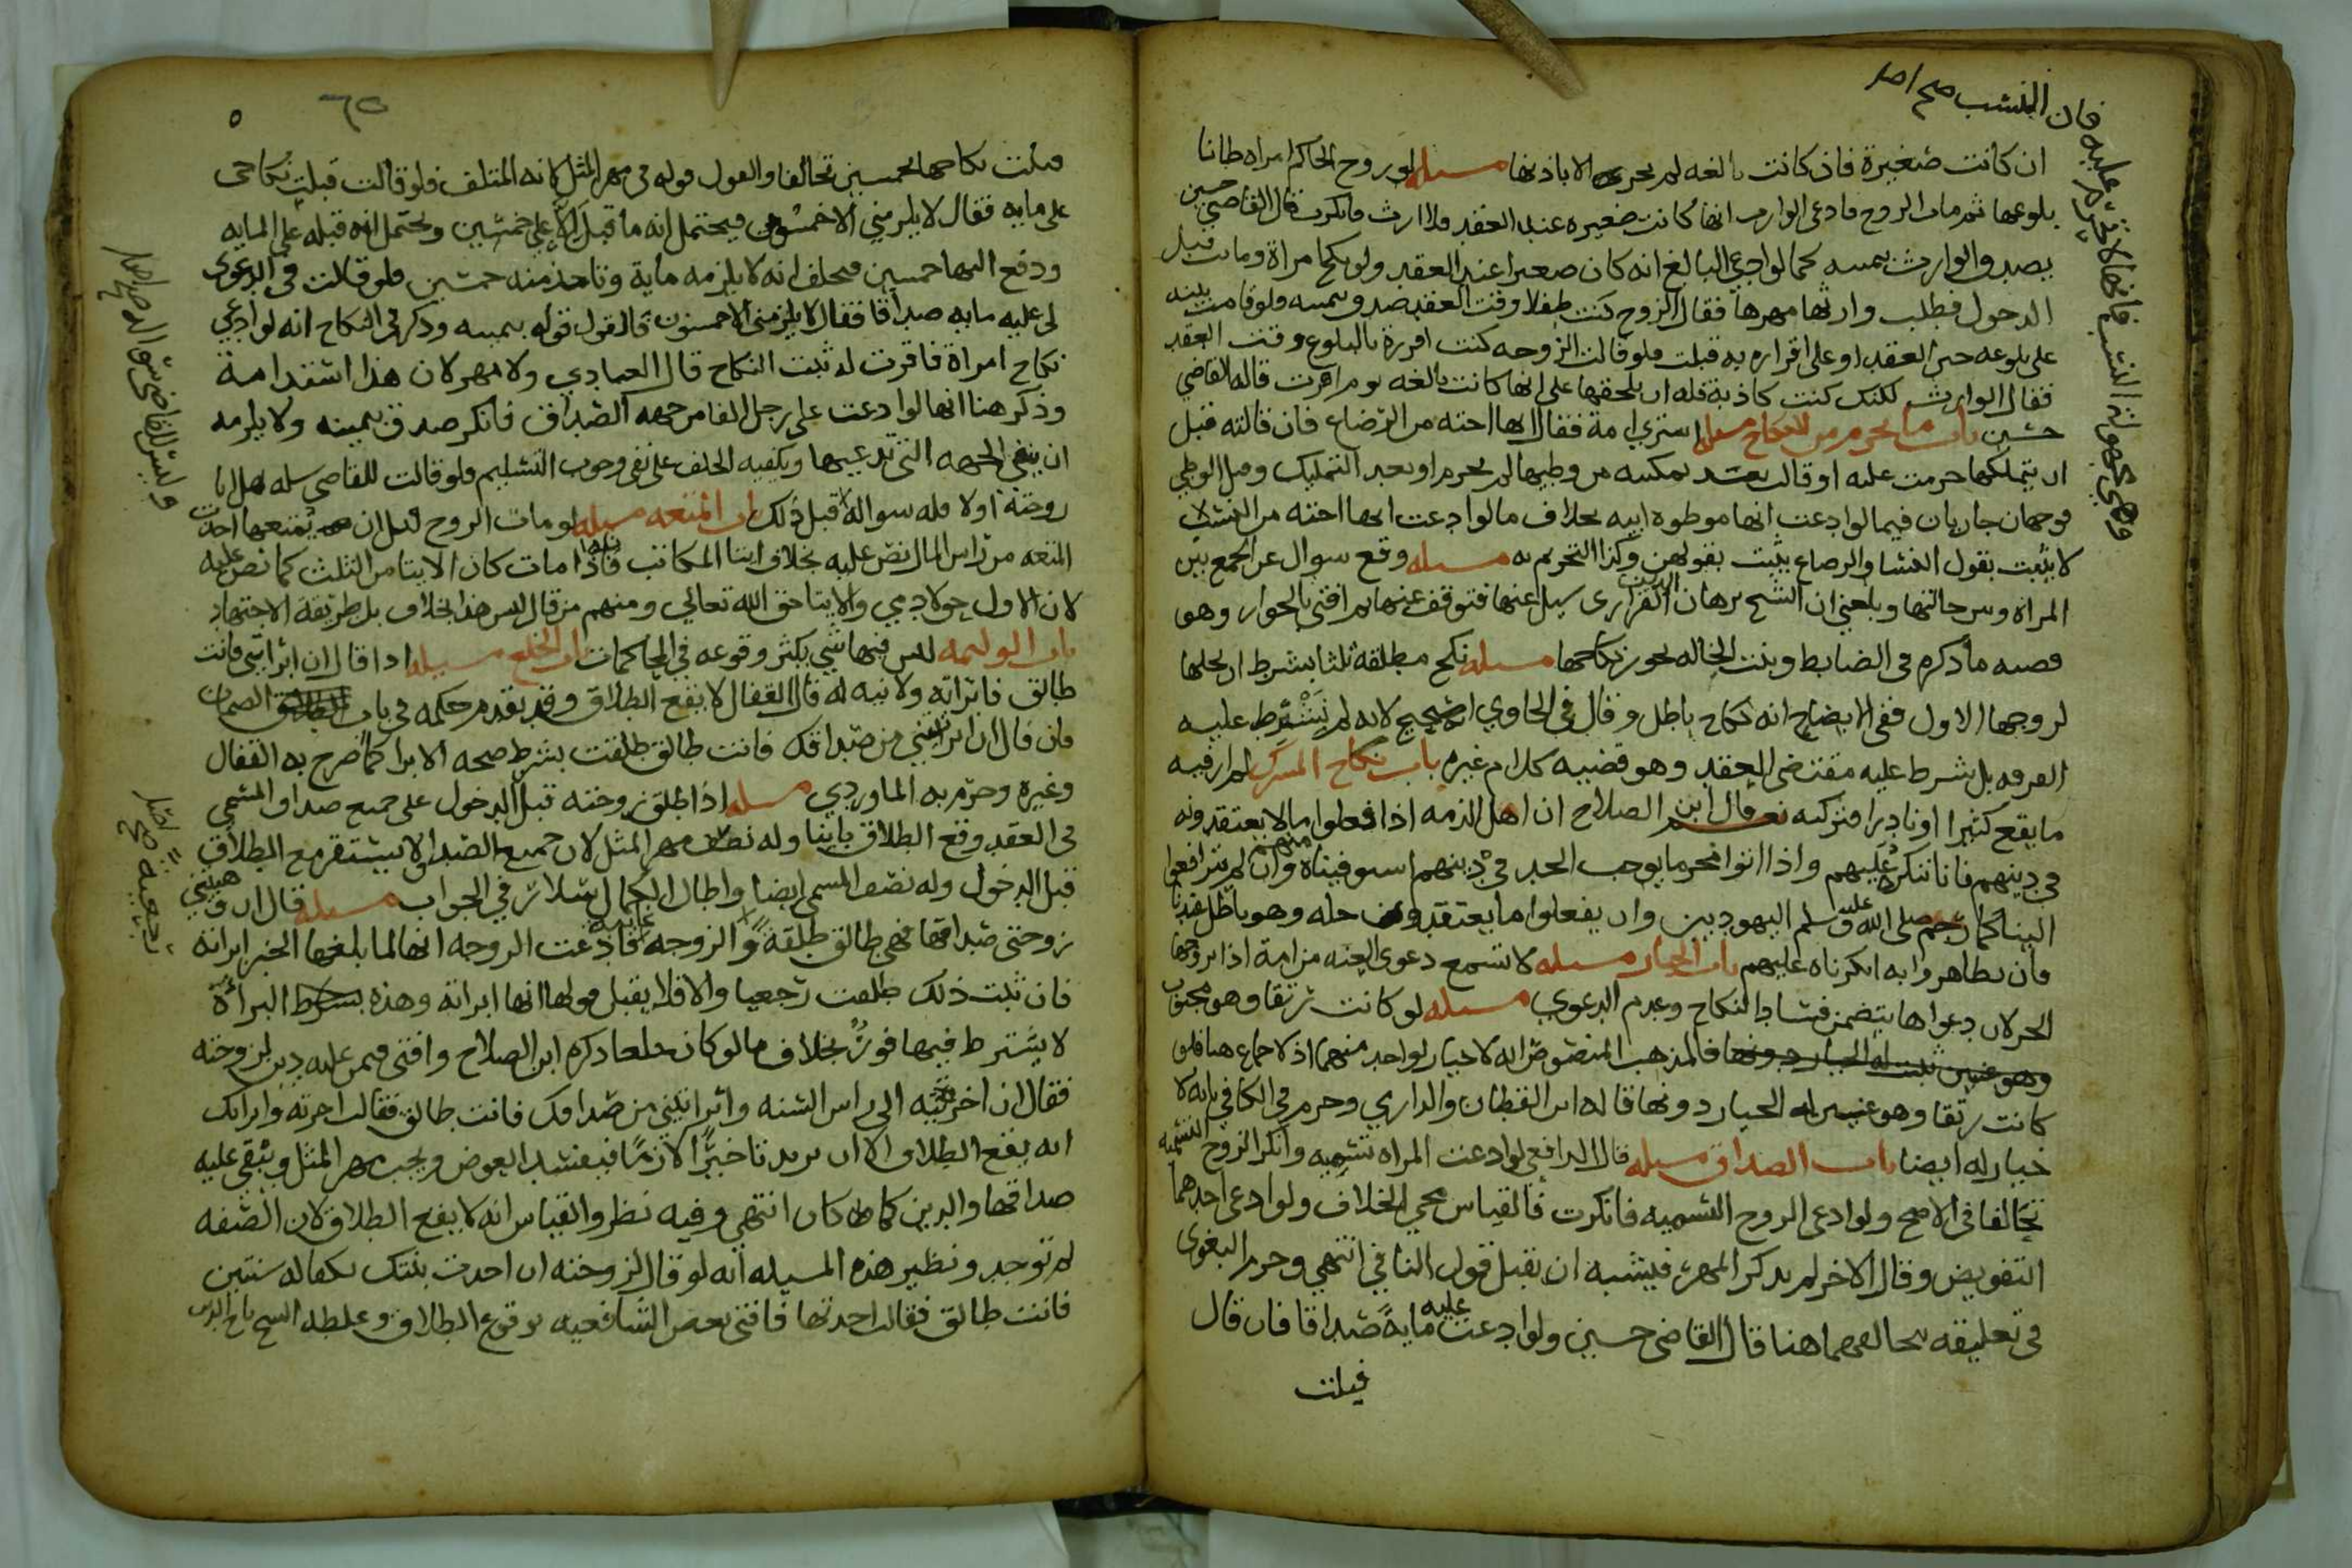 فان النسب صح اصل
ان كانت صغيرة فاذ كانت بالغه لم يجز الا باذنها مسله لو زوج الحاكم امراه ظانا
بلوغها ثم مات الزوج فادعى الوارث انها كانت صغيره عند العقد فلا ارث فانكرت قال القاضي حسين
يصدق الوارث بيمينه كما لو ادعى البالغ انه كان صغيرا عند العقد ولو نكح امراة ومات قبل
الدخول فطلب وارثها مهرها فقال الزوج كنت طفلا وقت العقد صدق بيمينه ولو قامت بينه
على بلوغه حين العقد او على اقراره به قبلت فلو قالت الزوجه كنت اقررة بالبلوغ وقت العقد
فقال الوارث لكنك كنت كاذبة فله ان يحلفها على انها كانت بالغه يوم اقرت قاله القاضي
حسين باب ما يحرم من النكاح مسله اشترى امة فقال انها اخته من الرضاع فان قالته قبل
ان يتملكها حرمت عليه او قالت بعد تمكينه من وطيها لم يحرم او بعد التمليك وقبل الوطي
فوجهان جاريان فيما لو ادعت انها موطوه ابيه بخلاف ما لو ادعت انها اخته من النسب
لا يثبت بقول النسا والرضاع يثبت بقولهن وكذا التحريم به مسله وقع سوال عن الجمع بين
المراة وبين خالتها وبلغني ان الشيخ برهان الدين الفزاري سيل عنها فتوقف عنها ثم افتى بالجواز وهو
قضيه ما ذكره في الضابط وبنت الخاله يجوز نكاحها مسله نكح مطلقة ثلثا بشرط ان يحلها
لزوجها الاول ففي الايضاح انه نكاح باطل وقال في الحاوي انه صحيح لانه لم يشترط عليه
الفرقه بل شرط عليه مقتضى العقد وهو قضيه كلام غيره باب نكاح المشرك لم ار فيه
ما يقع كثيرا او نادرا فتركته نعم قال ابن الصلاح ان اهل الذمه اذا فعلوا ما لا يعتقدونه
في دينهم فانا ننكره عليهم واذا اتوا محرما يوجب الحد في دينهم استوفيناه وان لم يترافعوا
الينا كما رجم صلى الله عليه وسلم اليهوديين وان يفعلوا ما يعتقدون حله وهو باطل عندنا
فان تظاهروا به انكرناه عليهم باب الخيار مسله لا تسمع دعوى العنه من امة اذا تزوجها
الحر لان دعواها يتضمن فساد النكاح وعدم الدعوي مسله لو كانت رتقا وهو مجبوب
وهو عنين ثبت له الخيار دونها فالمذهب المنصوص انه لا خيار لواحد منهما اذ لا جماع هنا فلو
كانت رتقا وهو عنين له الخيار دونها قاله ابن القطان والداري وجزم في الكافي بانه لا
خيار له ايضا باب الصداق مسله قال الرافعي لو ادعت المراه تسميه وانكر الزوج التسميه
تحالفا في الاصح ولو ادعى الزوج التسميه فانكرت فالقياس مجي الخلاف ولو ادعى احدهما
التفويض وقال الاخر لم يذكر المهر فيشبه ان يقبل قول النافي انتهي وجزم البغوى
في تعليقه بتحالفهما هنا قال القاضي حسين ولو ادعت عليه مايةً صداقا فان قال
قبلت
قبلت نكاحها بخمسين تحالفا والقول قوله في مهر المثل لانه المتلف فلو قالت قبلت نكاحى
على مايه فقال لا يلزمني الا خمسون فيحتمل انه ما قبل الا على خمسين ويحتمل انه قبله على المايه
ودفع اليها خمسين فيحلف انه لا يلزمه ماية وتاخذ منه خمسين فلو قالت في الدعوى
لى عليه مايه صداقا فقال لا يلزمني الا خمسون فالقول قوله بيمينه وذكر في النكاح انه لو ادعي
نكاح امراة فاقرت له ثبت النكاح قال العبادي ولا مهر لان هذا استدامة
وذكر هنا انها لو ادعت على رجل الفا من جهه الصداق فانكر صدق بيمينه ولا يلزمه
ان ينفي الجهه التي تدعيها ويكفيه الحلف على نفي وجوب التسليم فلو قالت للقاضي سله هل انا
زوجته اولا فله سواله قبل ذلك باب المتعه مسله لو مات الزوج قبل ان يمتعها اخذت
المتعه من راس المال نص عليه بخلاف ايتا المكاتب فاذا مات كان الايتا من الثلث كما نص عليه
لان الاول حق لادمي والايتا حق الله تعالي ومنهم من قال ليس هذا بخلاف بل طريقة الاجتهاد
باب الوليمه ليس فيها شي يكثر وقوعه في المحاكمات باب الخلع مسله اذا قال ان ابراتني فانت
طالق فابراته ولا نيه له قال القفال لا يقع الطلاق وقد تقدم حكمه في باب الضمان
فان قال ان ابراتني من صداقك فانت طالق طلقت بشرط صحه الابرا كما صرح به القفال
وغيره وجزم به الماوردي مسله اذا طلق زوجته قبل الدخول على جميع صداق المسمى
في العقد وقع الطلاق باينا وله نصف مهر المثل لان جميع الصداق لا يستقر مع الطلاق
قبل الدخول وله نصف المسمى ايضا واطال الكمال سلار في الجواب مسله قال ان وهبتني
زوجتى صداقها فهي طالق طلقة والزوجه غايبه فادعت الزوجه انها لما بلغها الخبر ابراته
فان ثبت ذلك طلقت رجعيا والا فلا يقبل قولها انها ابراته وهذه البراءة
لا يشترط فيها فور بخلاف ما لو كان خلعا ذكره ابن الصلاح وافتى فيمن عليه دين لزوجته
فقال ان اخرتيه الى راس السنه وابراتيني من صداقك فانت طالق فقالت اخرته وابراتك
انه يقع الطلاق الا ان يريد تاخيرًا لازمًا فيفسد العوض ويجب مهر المثل ويبقي عليه
صداقها والدين كما كان انتهي وفيه نظر والقياس انه لا يقع الطلاق لان الصفه
لم توجد ونظير هذه المسيله انه لو قال لزوجته ان اخذت بنتك بكفاله سنتين
فانت طالق فقالت اخذتها فافتى بعض الشافعيه بوقوع الطلاق وغلطه الشيخ تاج الدين